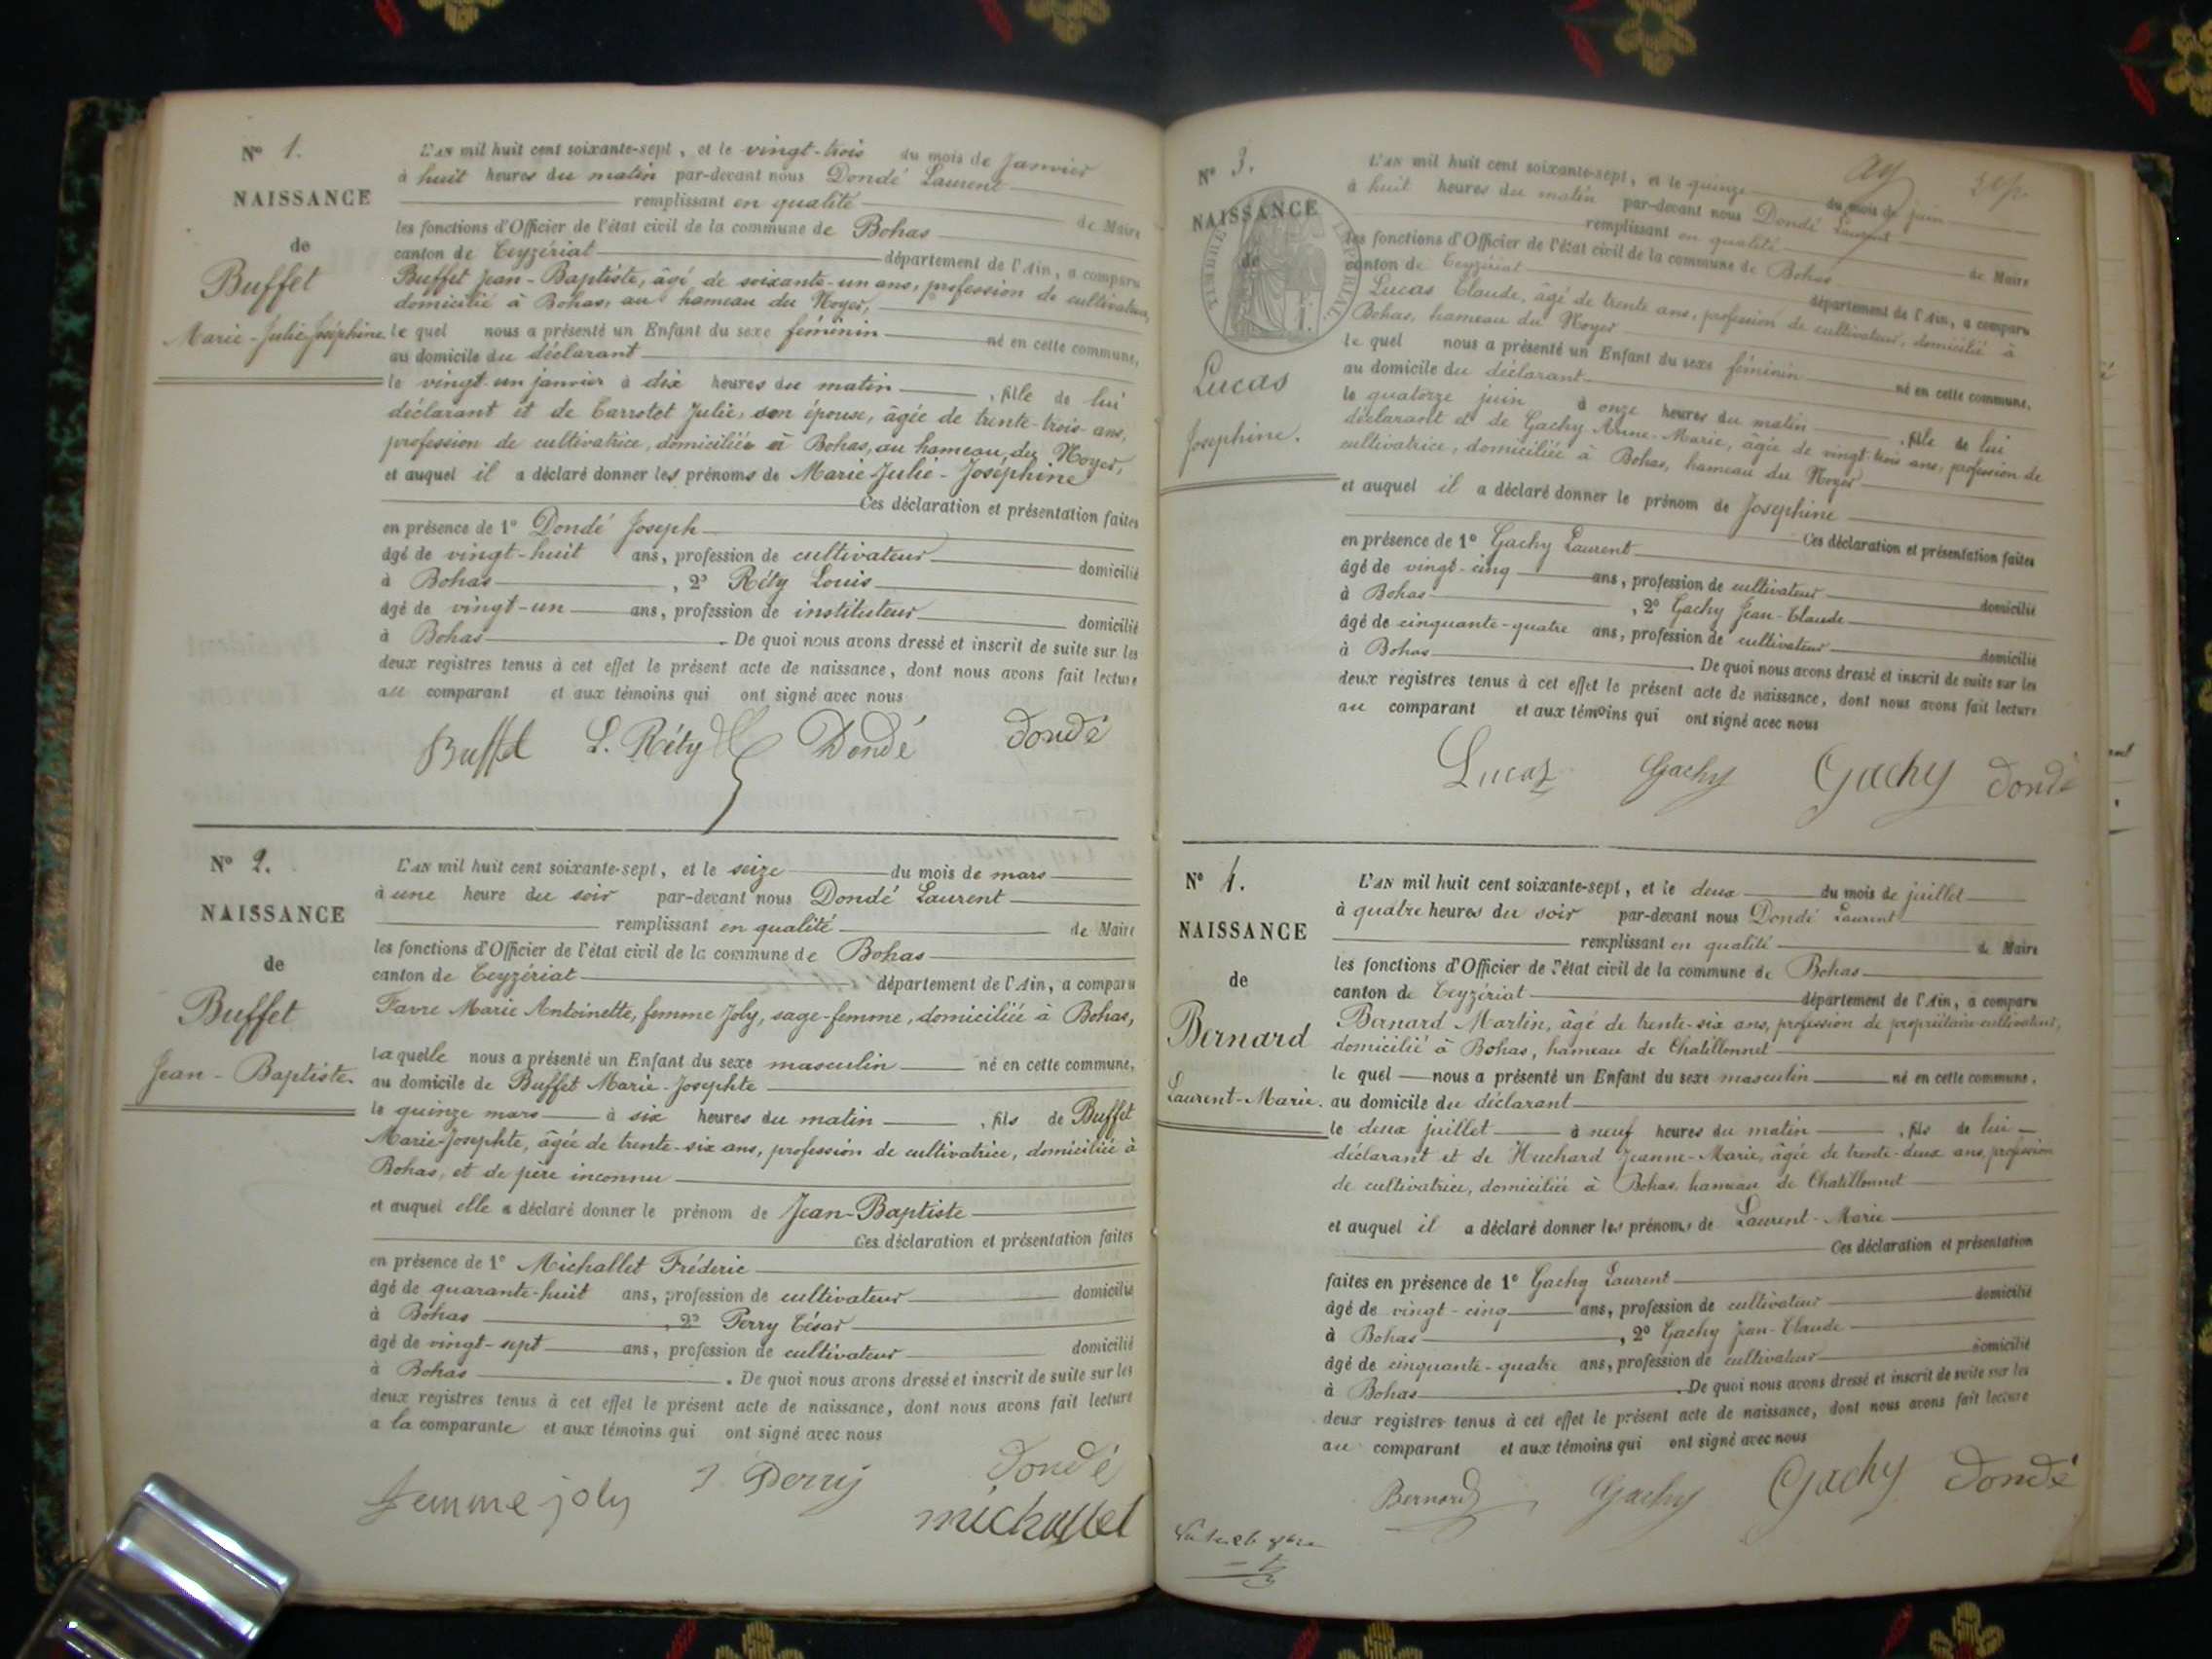 N° 1.
NAISSANCE
de
Buffet
Marie-Julie Joséphine
L'AN mil huit cent soixante-sept, et le vingt-trois du mois de Janvier
à huit heures du matin par-devant nous Dondé Laurent
remplissant en qualité de Maire
les fonctions d'Officier de l'état civil de la commune de Bohas
canton de Ceyzériat département de l'Ain, a comparu
Buffet Jean-Baptiste, âgé de soixante-un ans, profession de cultivateur,
domicilié à Bohas, au hameau du Noyer,
le quel nous a présenté un Enfant du sexe féminin né en cette commune,
au domicile du déclarant
le vingt-un janvier à dix heures du matin, fille de lui
déclarant et de Carrotet Julie, son épouse, âgée de trente-trois ans,
profession de cultivatrice, domiciliée à Bohas, au hameau du Noyer,
et auquel il a déclaré donner les prénoms de Marie Julie-Joséphine
Ces déclaration et présentation faites
en présence de 1° Dondé Joseph
âgé de vingt-huit ans, profession de cultivateur domicilié
à Bohas, 2° Réty Louis
âgé de vingt-un ans, profession de instituteur domicilié
à Bohas. De quoi nous avons dressé et inscrit de suite sur les
deux registres tenus à cet effet le présent acte de naissance, dont nous avons fait lecture
au comparant et aux témoins qui ont signé avec nous
Buffet L. Réty Dondé Dondé
N° 2.
NAISSANCE
de
Buffet
Jean-Baptiste.
L'AN mil huit cent soixante-sept, et le seize du mois de mars
à une heure du soir par-devant nous Dondé Laurent
remplissant en qualité de Maire
les fonctions d'Officier de l'état civil de la commune de Bohas
canton de Ceyzériat département de l'Ain, a comparu
Favre Marie Antoinette, femme Joly, sage-femme, domiciliée à Bohas,
laquelle nous a présenté un Enfant du sexe masculin né en cette commune,
au domicile de Buffet Marie-Josephte
le quinze mars à six heures du matin, fils de Buffet
Marie-Josephte, âgée de trente-six ans, profession de cultivatrice, domiciliée à
Bohas, et de père inconnu
et auquel elle a déclaré donner le prénom de Jean-Baptiste
Ces déclaration et présentation faites
en présence de 1° Michallet Fréderic
âgé de quarante-huit ans, profession de cultivateur domicilié
à Bohas, 2° Perry César
âgé de vingt-sept ans, profession de cultivateur domicilié
à Bohas. De quoi nous avons dressé et inscrit de suite sur les
deux registres tenus à cet effet le présent acte de naissance, dont nous avons fait lecture
a la comparante et aux témoins qui ont signé avec nous
femme joly Perry Dondé
michallet
N° 3.
NAISSANCE
de
TIMBRE IMPERIAL
Lucas
Josephine.
L'AN mil huit cent soixante-sept, et le quinze du mois de juin
à huit heures du matin par-devant nous Dondé Laurent
remplissant en qualité de Maire
les fonctions d'Officier de l'état civil de la commune de Bohas
canton de Ceyzériat département de l'Ain, a comparu
Lucas Claude, âgé de trente ans, profession de cultivateur, domicilié à
Bohas, hameau du Noyer
le quel nous a présenté un Enfant du sexe féminin né en cette commune,
au domicile du déclarant
le quatorze juin à onze heures du matin, fille de lui
déclarant et de Gachy Anne-Marie, âgée de vingt-trois ans, profession de
cultivatrice, domiciliée à Bohas, hameau du Noyer
et auquel il a déclaré donner le prénom de Josephine
Ces déclaration et présentation faites
en présence de 1° Gachy Laurent
âgé de vingt-cinq ans, profession de cultivateur domicilié
à Bohas, 2° Gachy Jean-Claude
âgé de cinquante-quatre ans, profession de cultivateur domicilié
à Bohas. De quoi nous avons dressé et inscrit de suite sur les
deux registres tenus à cet effet le présent acte de naissance, dont nous avons fait lecture
au comparant et aux témoins qui ont signé avec nous
Lucas Gachy Gachy Dondé
N° 4.
NAISSANCE
de
Bernard
Laurent-Marie.
L'AN mil huit cent soixante-sept, et le deux du mois de juillet
à quatre heures du soir par-devant nous Dondé Laurent
remplissant en qualité de Maire
les fonctions d'Officier de l'état civil de la commune de Bohas
canton de Ceyzériat département de l'Ain, a comparu
Bernard Martin, âgé de trente-six ans, profession de propriétaire-cultivateur,
domicilié à Bohas, hameau de Chatillonnet
le quel nous a présenté un Enfant du sexe masculin né en cette commune,
au domicile du déclarant
le deux juillet à neuf heures du matin, fils de lui
déclarant et de Huchard Jeanne-Marie, âgée de trente-deux ans, profession
de cultivatrice, domiciliée à Bohas, hameau de Chatillonnet
et auquel il a déclaré donner les prénoms de Laurent-Marie
Ces déclaration et présentation
faites en présence de 1° Gachy Laurent
âgé de vingt-cinq ans, profession de cultivateur domicilié
à Bohas, 2° Gachy Jean-Claude
âgé de cinquante-quatre ans, profession de cultivateur domicilié
à Bohas. De quoi nous avons dressé et inscrit de suite sur les
deux registres tenus à cet effet le présent acte de naissance, dont nous avons fait lecture
au comparant et aux témoins qui ont signé avec nous
Bernard Gachy Gachy Dondé